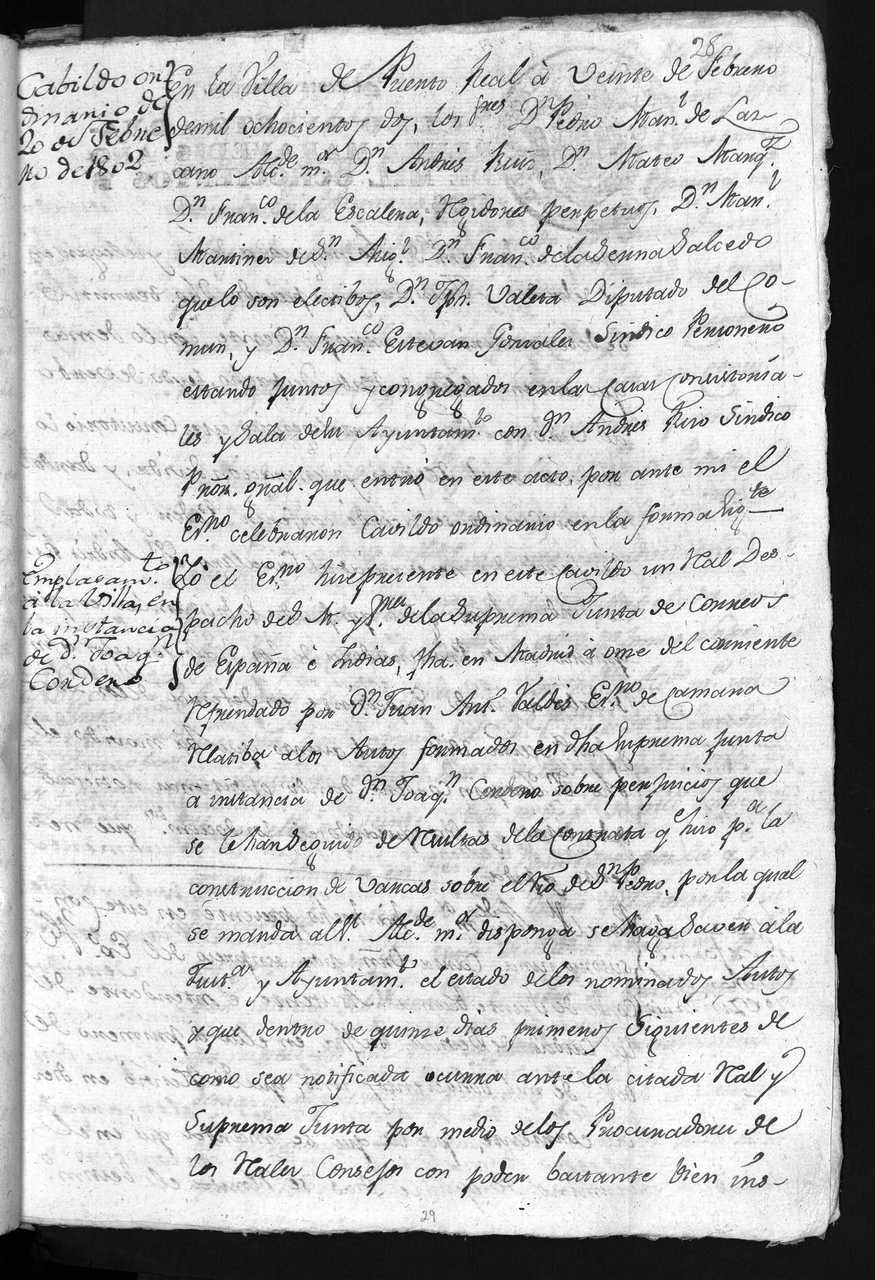 28
Cabildo or
dinario de
20 de Febre
ro de 1802
En la Villa de Puerto Real à veinte de Febrero
de mil ochocientos dos, los Sres. Dn Pedro Manl. de Laz
cano Alcde. mor. Dn. Andrés Ruiz, Dn. Mateo Marqz.
Dn. Franco. de la Escalera, Regidores perpetuos, Dn. Manl.
Martinez de Sn. Migl. Dn Franco. de la Serna Salcedo
que lo son electibos, Dn. Jph. Valera Diputado del Co-
mun, y Dn. Franco. Estevan Gonzales Sindico Personero
estando juntos y congregados en las Casas Consistoria-
les y Sala de su Ayuntamto. con Dn Andres Riso Sindico
Pror. gral. que entró en este acto, por ante mi el
Esno. celebraron Cavildo ordinario en la forma sigte
Emplasamto.
à la Villa, en
la instancia
de Dn. Joaqn
Cordero
Yo el Esno hice presente en este Cavildo un Rl Des-
pacho de S. M. y Sres. de la Suprema Junta de Correos
de España è Indias, fha. en Madrid à onse del corriente
Refrendado por Dn. Juan Anto. Valdés Esno. de Camara
Relatiba a los Autos formados en dha Suprema Junta
a instancia de Dn. Joaqn. Cordero sobre perjuicios que
se le han seguido de Resultas de la Contrata qe hiso pa. la
construccion de varcas sobre el Rio de Sn Pedro, por la qual
se manda al Sr. Alcde. mor. disponga se haga saver à la
Just.a y Ayuntamto. el estado de los nominados Autos
y que dentro de quinse dias primeros siguientes de
como sea notificada ocurra ante la citada Real y
Suprema Junta por medio de los Procuradores de
los Reales Consejos con poder bastante bien ins-
29